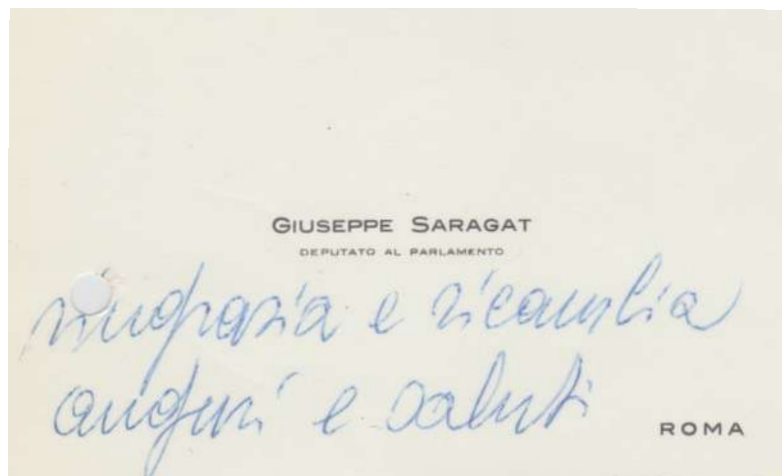 GIUSEPPE SARAGAT
DEPUTATO AL PARLAMENTO
ringrazia e ricambia
auguri e saluti
ROMA